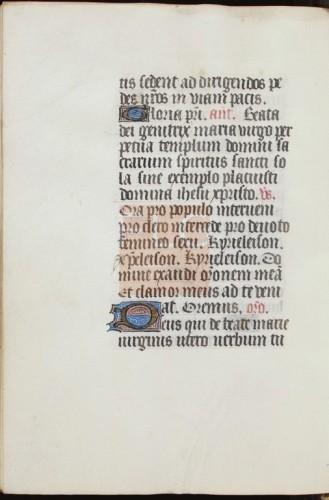 tis sedent ad dirigendos pe
des nr̄os in viam pacis.
Gloria pr̄i. ant. Beata
dei genitrix maria virgo per
petua templum domini sa
crarium spiritus sancti so
la sine exemplo placuisti
domino ihesu xpristo. vs.
Ora pro populo interueni
pro clero intercede pro deuoto
femineo sexu. Kyrieleison.
xp̄eleison. Kyrieleison. Do
mine exaudi or̄onem meā
Et clamor meus ad te veni
at. Oremus. or̄o.
Deus qui de beate marie
virginis utero verbum tu